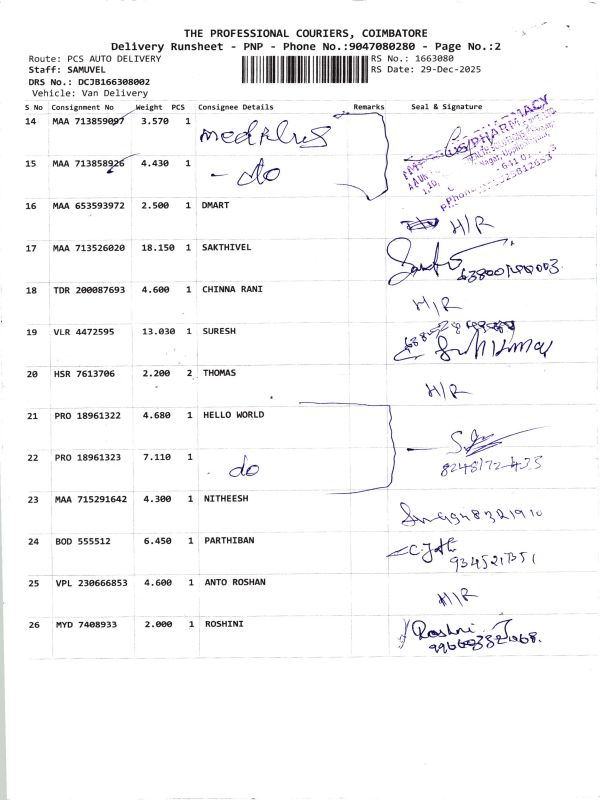 THE PROFESSIONAL COURIERS, COIMBATORE
Delivery Runsheet - PNP - Phone No.:9047080280 - Page No.:2
Route: PCS AUTO DELIVERY RS No.: 1663080
Staff: SAMUVEL RS Date: 29-Dec-2025
DRS No.: DCJB166308002
Vehicle: Van Delivery
S No Consignment No Weight PCS Consignee Details Remarks Seal & Signature
14 MAA 713859097 3.570 1 medplus
15 MAA 713858926 4.430 1 - do
16 MAA 653593972 2.500 1 DMART H/R
17 MAA 713526020 18.150 1 SAKTHIVEL
18 TDR 200087693 4.600 1 CHINNA RANI H/R
19 VLR 4472595 13.030 1 SURESH
20 HSR 7613706 2.200 2 THOMAS H/R
21 PRO 18961322 4.680 1 HELLO WORLD
22 PRO 18961323 7.110 1 do
23 MAA 715291642 4.300 1 NITHEESH
24 BOD 555512 6.450 1 PARTHIBAN
25 VPL 230666853 4.600 1 ANTO ROSHAN H/R
26 MYD 7408933 2.000 1 ROSHINI Roshni J